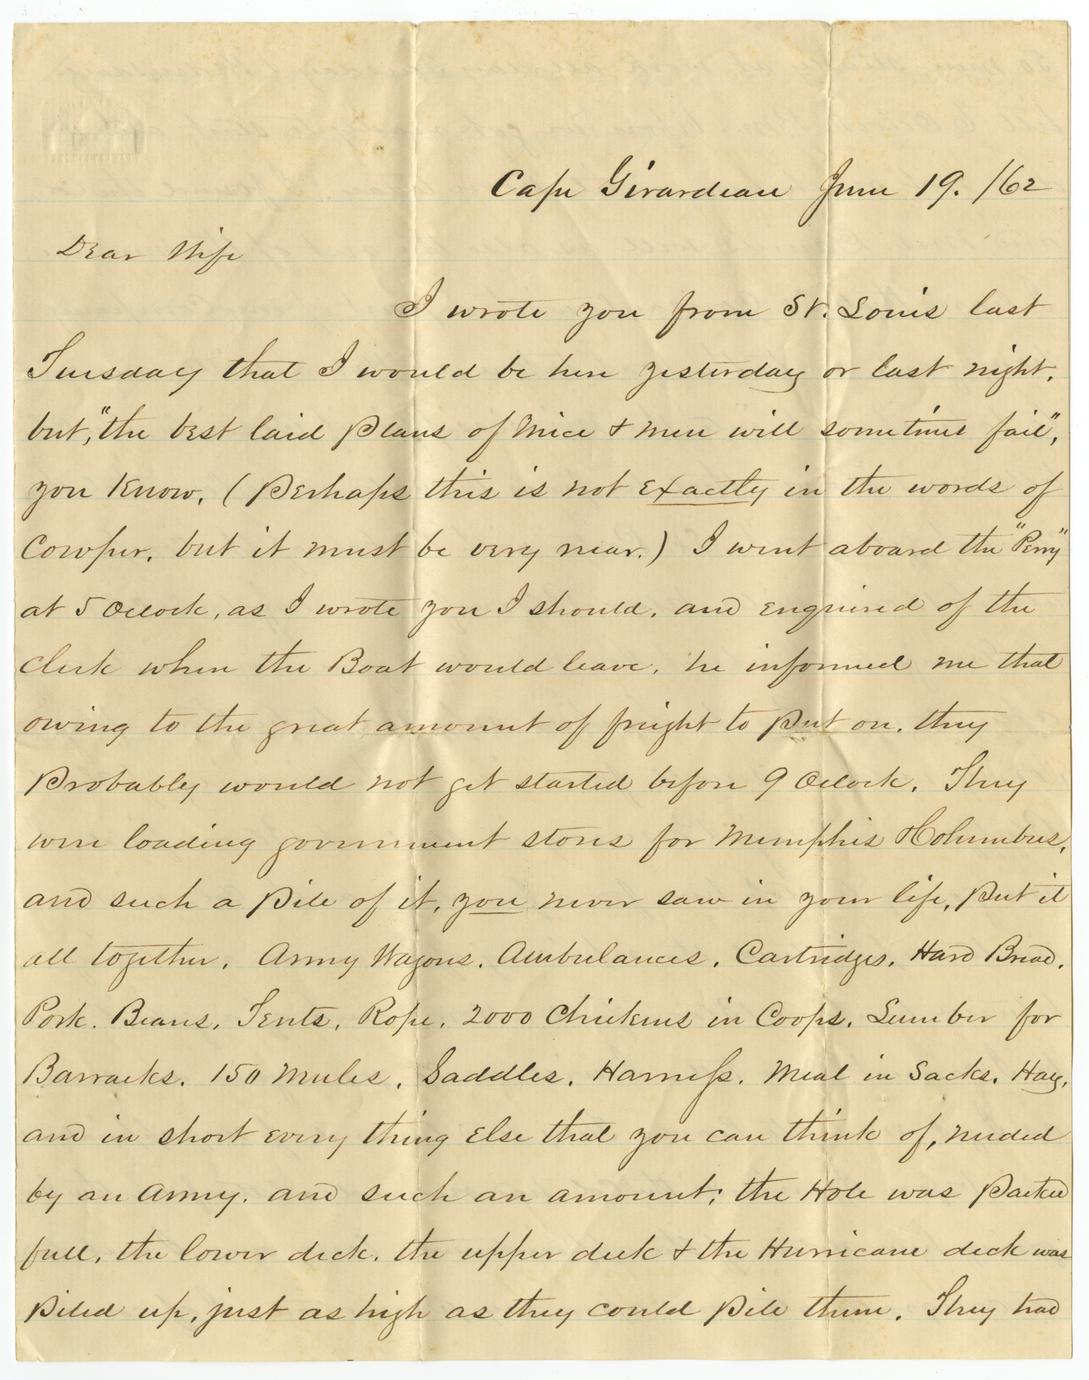 Cape Girardeau June 19. /62
Dear Wife
I wrote you from St. Louis last
Tuesday that I would be here yesterday or last night,
but, "the best laid Plans of Mice & Men will sometimes fail",
you Know, (Perhaps this is not exactly in the words of
Cowper, but it must be very near.) I went aboard the "Perry"
at 5 Oclock, as I wrote you I should, and enquired of the
Clerk when the Boat would leave, he informed me that
owing to the great amount of freight to Put on, they
Probably would not get started before 9 Oclock, They
were loading government stores for Memphis & Columbus,
and such a Pile of it, you never saw in your life, Put it
all together, Army Wagons, Ambulances, Cartridges, Hard Bread,
Pork, Beans, Tents, Rope, 2000 Chickens in Coops, Lumber for
Barracks, 150 Mules, Saddles, Harness, Meal in Sacks, Hay,
and in short every thing Else that you can think of, needed
by an Army, and such an amount; the Hole was Packed
full, the lower deck, the upper deck & the Hurricane deck was
Piled up, just as high as they could Pile them, They had